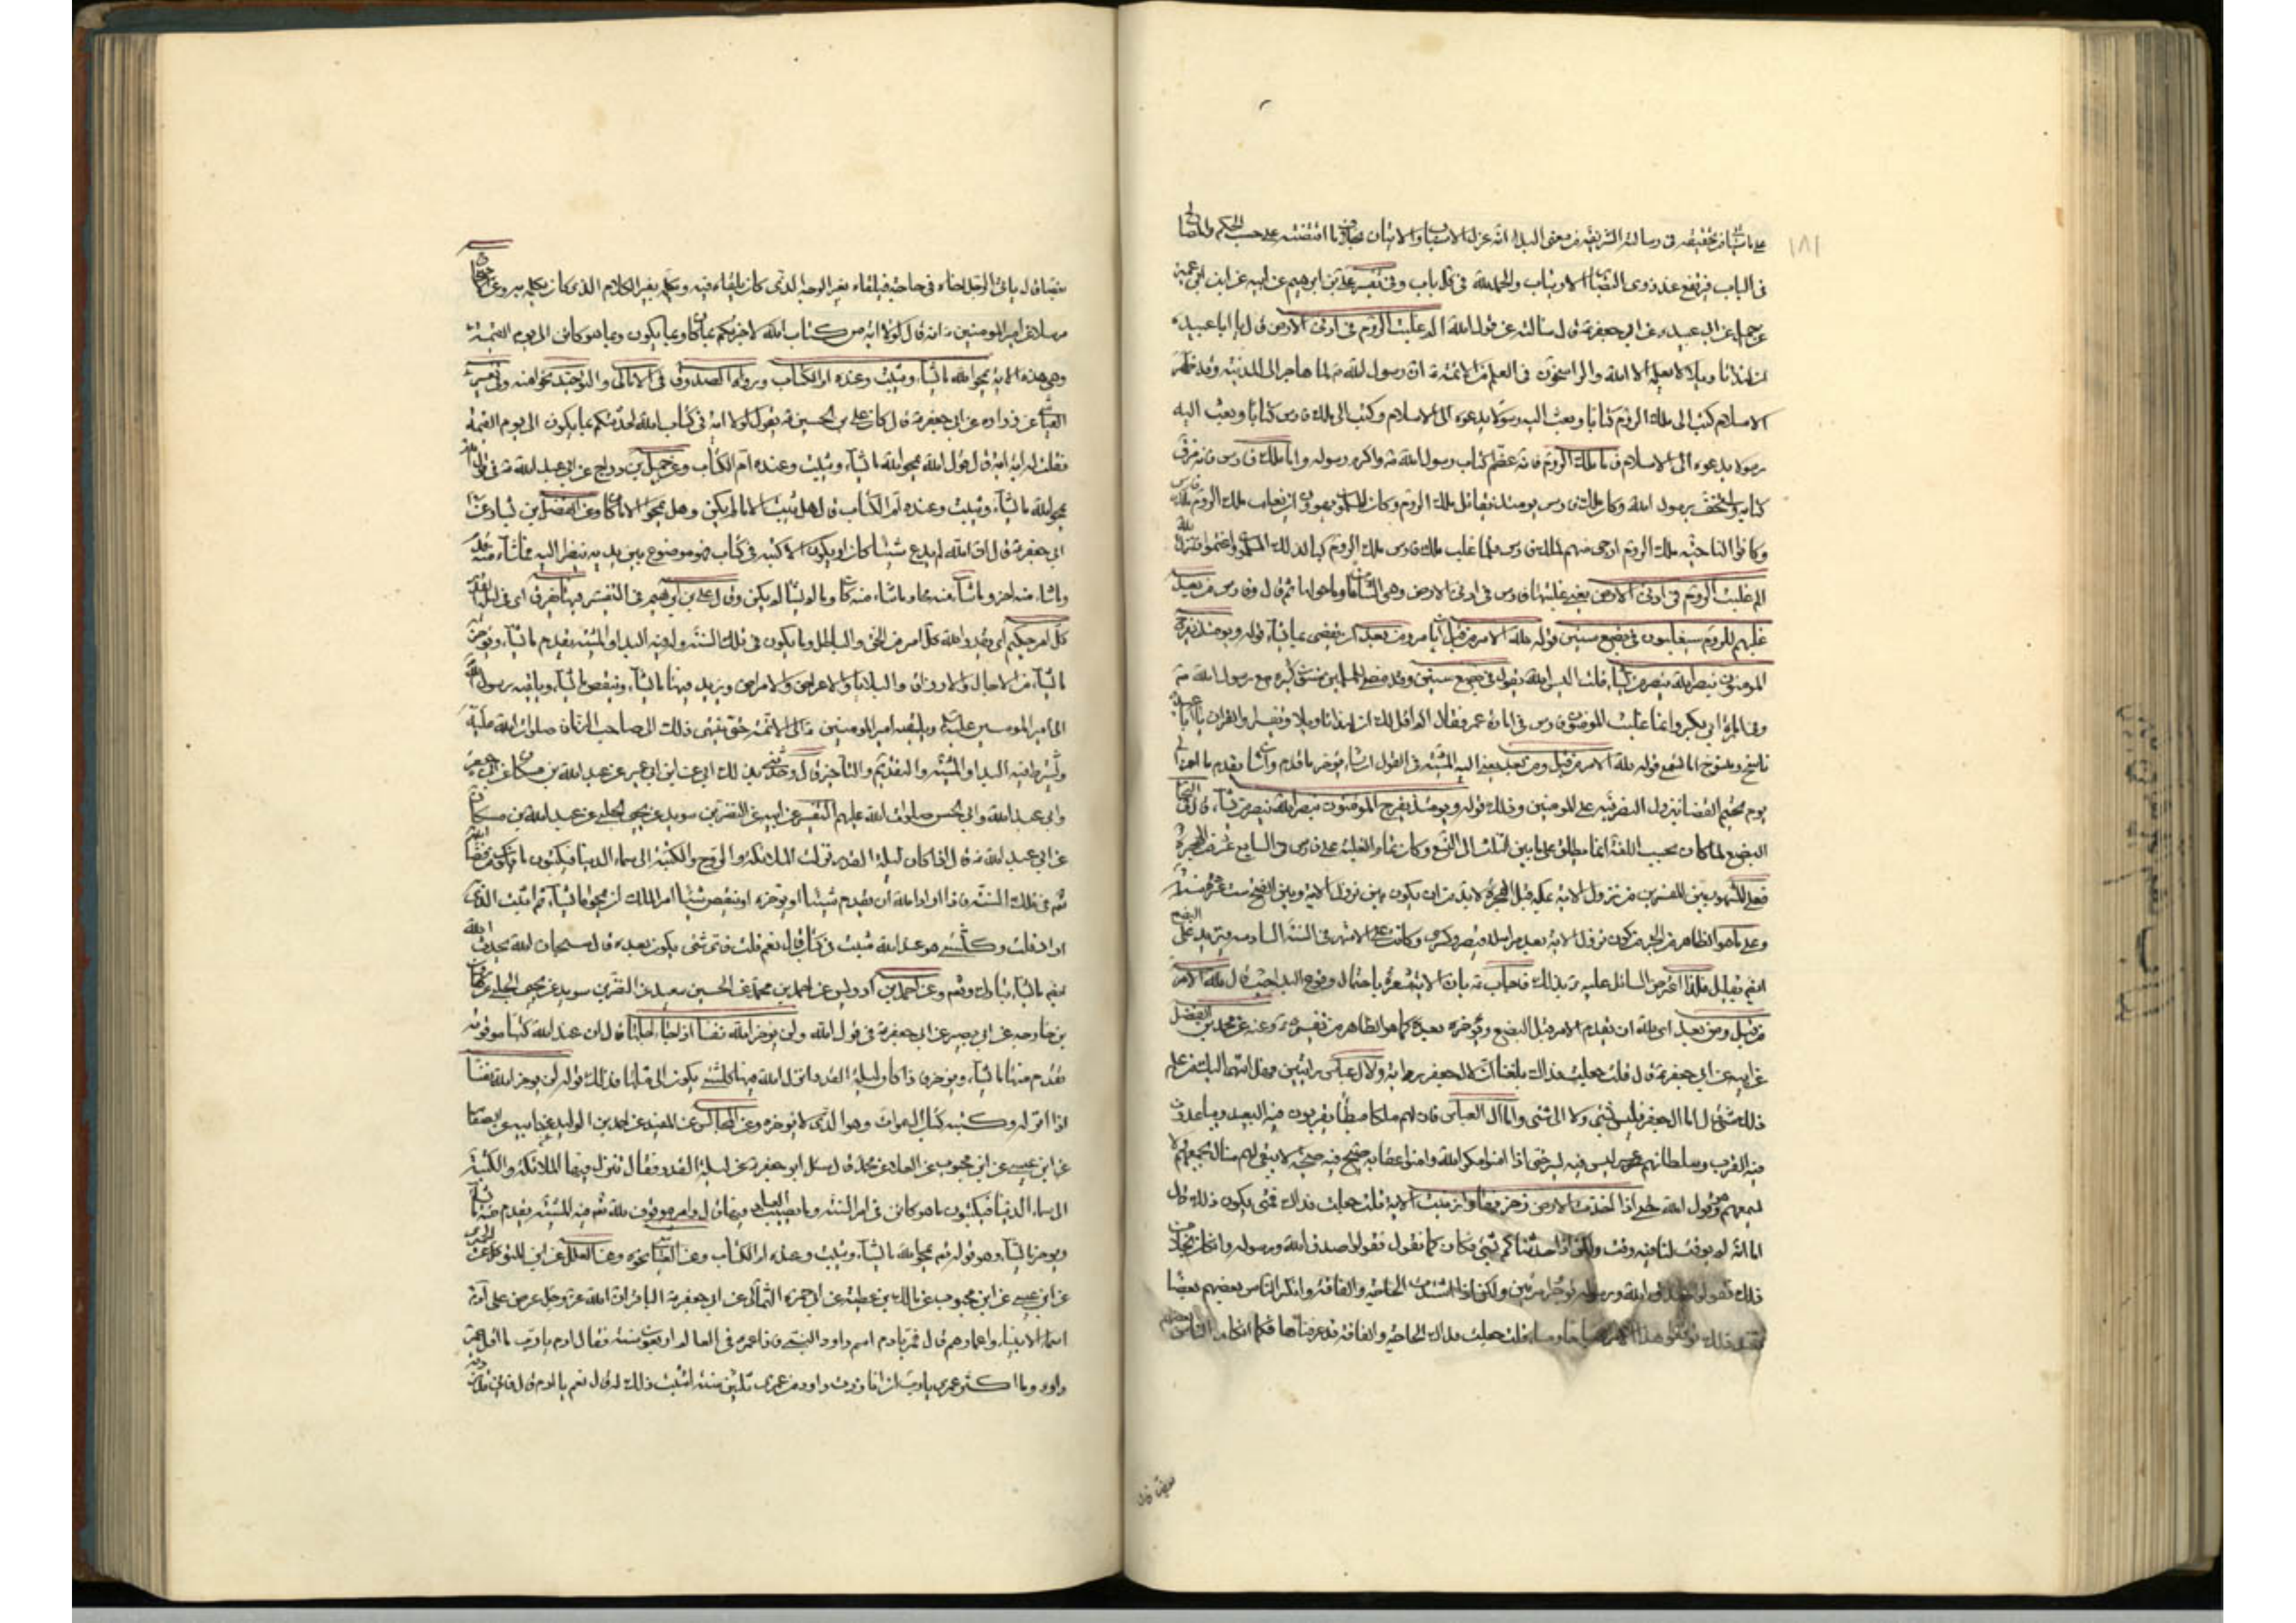 ١٨١
في الباب فرتفع عند ذوي الالباب والحمد لله في كل باب وفي تفسير علي بن ابرهيم عن ابيه عن ابن ابي عمير
عن جميل عن ابي عبيدة عن ابي جعفر ع قال سالته عن قول الله الم غلبت الروم في ادنى الارض قال يا ابا عبيدة
ان لهذا تاويلا لا يعلمه الا الله والراسخون في العلم من الائمة ع ان رسول الله ص لما هاجر الى المدينة وقد ظهر
الاسلام كتب الى ملك الروم كتابا وبعث اليه رسولا يدعوه الى الاسلام وكتب الى ملك فارس كتابا وبعث اليه
رسولا يدعوه الى الاسلام فاما ملك الروم فانه عظم كتاب رسول الله ص واكرم رسوله واما ملك فارس فانه مزق
كتابه واستخف برسول الله وكان ملك فارس يومئذ يقاتل ملك الروم وكان المسلمون يهوون ان يغلب ملك الروم ملك فارس
وكانوا لناحية ملك الروم ارجى منهم لملك فارس فلما غلب ملك فارس ملك الروم كبا لذلك المسلمون واغتموا فانزل الله
الم غلبت الروم في ادنى الارض يعني غلبتها فارس في ادنى الارض وهي الشامات وما حولها ثم قال وفارس من بعد
غلبهم للروم سيغلبون في بضع سنين قوله لله الامر من قبل ان يامر ومن بعد ان يقضي بما يشاء قوله ويومئذ يفرح
المومنون بنصر الله ينصر من يشاء قلت اليس الله يقول في بضع سنين وقد مضى للمسلمين سنون كثيرة مع رسول الله ص
وفي امارة ابي بكر وانما غلبت المومنون فارس في امارة عمر فقال الم اقل لك ان لهذا تاويلا وتفسيرا والقران يا ابا عبيدة
ناسخ ومنسوخ اما تسمع قوله لله الامر من قبل ومن بعد يعني اليه المشية في القول ان يشاء يؤخر ما قدم وان يشا يقدم ما اخر الى
يوم يحتم القضا بنزول النصر فيه على المومنين وذلك قوله ويومئذ يفرح المومنون بنصر الله ينصر من يشاء
من قبل ومن بعد اي لله ان يقدم الامر قبل البضع ويؤخره بعده كما هو الظاهر من تفسيره ع وعنه عن محمد بن الفضيل
عن ابيه عن ابي جعفر ع قال قلت جعلت فداك بلغنا ان لال جعفر راية ولال عباس رايتين فهل انتهى اليك من علم
ذلك شئ قال اما ال جعفر فليس بشئ ولا الى شئ واما ال العباس فان لهم ملكا مبطئا يقربون فيه البعيد ويباعدون
فيه القريب وسلطانهم عسر ليس فيه يسر حتى اذا امنوا مكر الله وامنوا عقابه صيح فيهم صيحة لا يبقى لهم منال يجمعهم ولا
يسمعهم وهو قول الله حتى اذا اخذت الارض زخرفها وازينت الاية قلت جعلت فداك فمتى يكون ذلك قال
اما انه لم يوقت لنا فيه وقت ولكن اذا حدثناكم بشئ فكان كما نقول فقولوا صدق الله ورسوله وان كان بخلاف
ذلك فقولوا صدق الله ورسوله توجروا مرتين ولكن اذا اشتدت الحاجة والفاقة وانكر الناس بعضهم بعضا
فعند ذلك توقعوا هذا الامر صباحا ومساء قلت جعلت فداك الحاجة والفاقة قد عرفناها فما انكار الناس
بعضا قال ياتي الرجل اخاه في حاجة فيلقاه بغير الوجه الذي كان يلقاه فيه ويكلمه بغير الكلام الذي كان يكلمه به وعن
مرسلا عن امير المومنين ع انه قال لولا اية من كتاب الله لاخبرتكم بما كان وبما يكون وبما هو كائن الى يوم القيمة
وهي هذه الاية يمحوا الله ما يشاء ويثبت وعنده ام الكتاب ورواه الصدوق في الامالي والتوحيد نحوا منه وفي تفسير
العياشي عن زرارة عن ابي جعفر ع قال كان علي بن الحسين ع يقول لولا اية في كتاب الله لحدثتكم بما يكون الى يوم القيمة
فقلت له اية اية قال قول الله يمحوا الله ما يشاء ويثبت وعنده ام الكتاب وعن جميل بن دراج عن ابي عبد الله ع في قوله
يمحوا الله ما يشاء ويثبت وعنده ام الكتاب قال هل يثبت الا ما لم يكن وهل يمحوا الا ما كان وعن الفضيل بن يسار عن
ابي جعفر ع قال ان الله لم يدع شيئا كان او يكون الا كتبه في كتاب فهو موضوع بين يديه ينظر اليه فما شاء منه قدم
وما شاء منه اخر وما شاء منه محا وما شاء منه كان وما لم يشا لم يكن وقال علي بن ابرهيم في التفسير فيها يفرق اي في ليلة القدر
كل امر حكيم اي يقدر الله كل امر من الحق والباطل وما يكون في تلك السنة وله فيه البداء والمشية يقدم ما يشاء ويؤخر
ما يشاء من الاجال والارزاق والبلايا والاعراض والامراض ويزيد فيها ما يشاء وينقص ما يشاء ويلقيه رسول الله
الى امير المومنين عليه ويلقيه امير المومنين ع الى الائمة حتى ينتهي ذلك الى صاحب الزمان صلوات الله عليه
ويشرط فيه البداء والمشية والتقديم والتاخير قال وحدثني بذلك ابي عن ابن ابي عمير عن عبد الله بن مسكان عن ابي جعفر
وابي عبد الله وابي الحسن صلوات الله عليهم التفسير عن ابيه عن النضر بن سويد عن يحيى الحلبي عن عبد الله بن مسكان
عن ابي عبد الله ع قال اذا كان ليلة القدر نزلت الملائكة والروح والكتبة الى سماء الدنيا فيكتبون ما يكون من قضاء الله
في تلك السنة فاذا اراد الله ان يقدم شيئا او يؤخره او ينقص شيئا امر الملك ان يمحو ما يشاء ثم اثبت الذي
اراد قلت وكل شئ هو عند الله مثبت في كتاب قال نعم قلت فاي شئ يكون بعده قال سبحان الله ثم يحدث الله
ايضا ما يشاء تبارك وتعالى وعن احمد بن ادريس عن احمد بن محمد عن الحسين بن سعيد عن النضر بن سويد عن يحيى الحلبي عن هارون
بن خارجه عن ابي بصير عن ابي جعفر ع في قول الله ولن يؤخر الله نفسا اذا جاء اجلها قال ان عند الله كتبا موقوفة
يقدم منها ما يشاء ويؤخر فاذا كان ليلة القدر انزل الله فيها كل شئ يكون الى مثلها فذلك قوله لن يؤخر الله نفسا
اذا انزله وكتبه كتاب السموات وهو الذي لا يؤخره وعن المجالس عن المفيد عن احمد بن الوليد عن ابيه عن الصفار
عن ابن عيسى عن ابن محبوب عن العلاء عن محمد قال سئل ابو جعفر ع عن ليلة القدر فقال تنزل فيها الملائكة والكتبة
الى سماء الدنيا فيكتبون ما هو كائن في امر السنة وما يصيب العباد فيها قال وامر موقوف لله تعالى فيه المشية يقدم منه ما
ويؤخر ما يشاء وهو قوله تعالى يمحوا الله ما يشاء ويثبت وعنده ام الكتاب وعن العياشي نحوه وعن العلل عن ابن المتوكل عن
عن ابن عيسى عن ابن محبوب عن مالك بن عطية عن ابي حمزة الثمالي عن ابي جعفر ع الباقر ان الله عز وجل عرض على ادم
اسماء الانبياء واعمارهم قال فمر بادم اسم داود النبي فاذا عمره في العالم اربعون سنة فقال ادم يا رب ما اقل عمر
داود وما اكثر عمري يا رب ان انا زدت داود من عمري ثلثين سنة اثبت ذلك له قال نعم يا ادم قال فاني